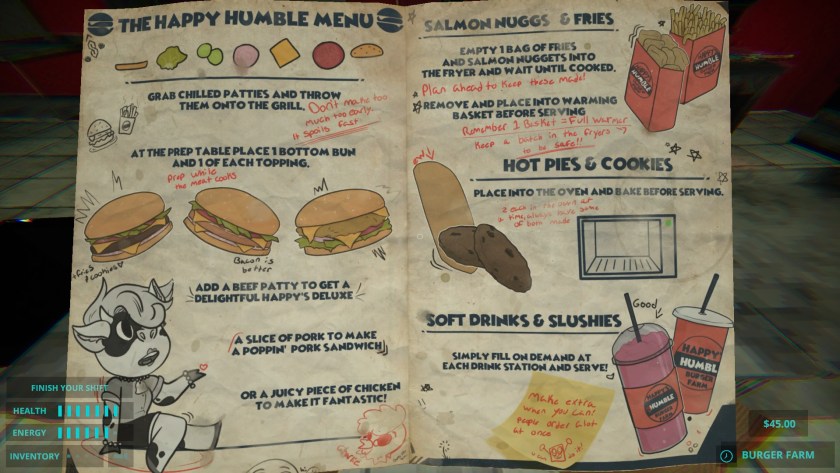 THE HAPPY HUMBLE MENU
GRAB CHILLED PATTIES AND THROW
THEM ONTO THE GRILL.
Don't make too
much too early.
It spoils fast.
AT THE PREP TABLE PLACE 1 BOTTOM BUN
AND 1 OF EACH TOPPING.
Prep while
the meat cooks
+fries
+cookies
Bacon is
better
ADD A BEEF PATTY TO GET A
DELIGHTFUL HAPPY'S DELUXE
A SLICE OF PORK TO MAKE
A POPPIN' PORK SANDWICH
OR A JUICY PIECE OF CHICKEN
TO MAKE IT FANTASTIC!
FINISH YOUR SHIFT
HEALTH
ENERGY
INVENTORY
SALMON NUGGS & FRIES
EMPTY 1 BAG OF FRIES
AND SALMON NUGGETS INTO
THE FRYER AND WAIT UNTIL COOKED.
Plan ahead to keep these made!
REMOVE AND PLACE INTO WARMING
BASKET BEFORE SERVING
Remember 1 Basket = Full warmer
Keep a batch in the fryers
to be safe!!
HUMBLE
HAPPY
HUMBLE
HOT PIES & COOKIES
PLACE INTO THE OVEN AND BAKE BEFORE SERVING.
at
time, always have some
of both made
SOFT DRINKS & SLUSHIES
Good
SIMPLY FILL ON DEMAND AT
EACH DRINK STATION AND SERVE!
HUMBLE
HAPPY
HUMBL
BURGER
FARM
Make extra
when you can!
People order alot
at once
$45.00
BURGER FARM